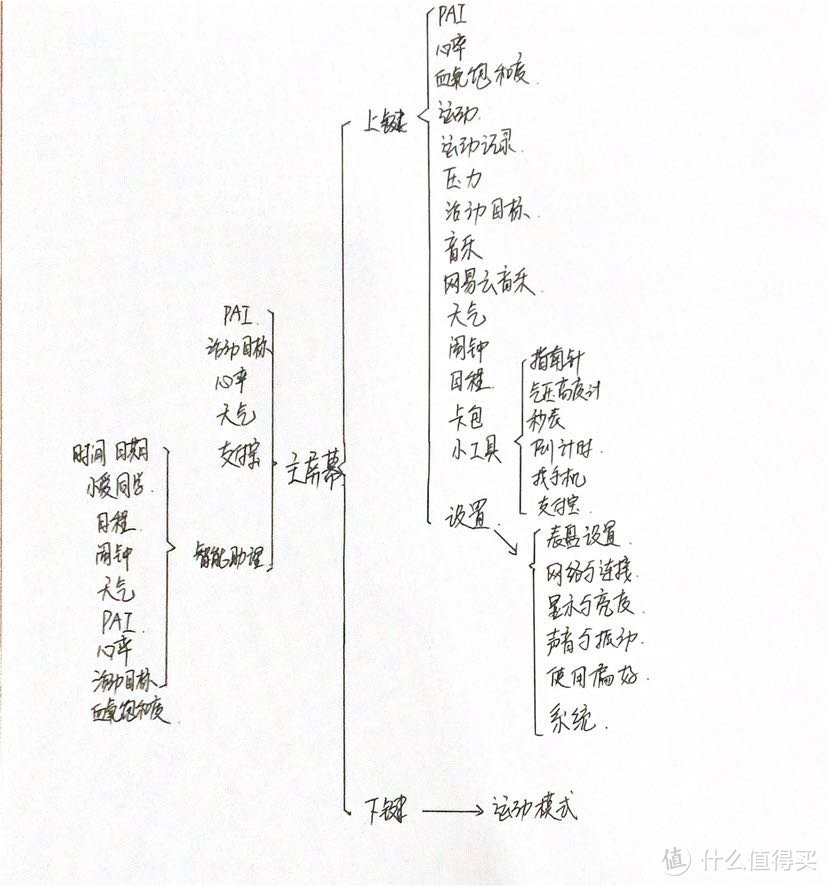 PAI
心率
血氧饱和度
运动
运动记录
压力
活动目标
音乐
网易云音乐
天气
闹钟
日程
卡包
小工具
设置
上键
指南针
气压高度计
秒表
倒计时
找手机
支付宝
表盘设置
网络与连接
显示与亮度
声音与振动
使用偏好
系统
主屏幕
PAI
活动目标
心率
天气
支付宝
智能助理
时间 日期
小爱同学
日程
闹钟
天气
PAI
心率
活动目标
血氧饱和度
下键
运动模式
值 什么值得买